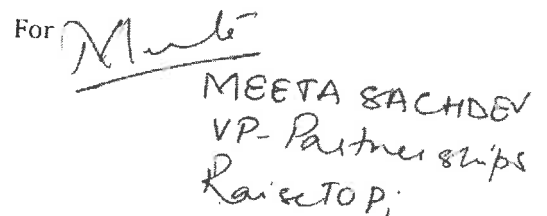 For Meeta
MEETA SACHDEV
VP-Partnerships
RaiseTOP;